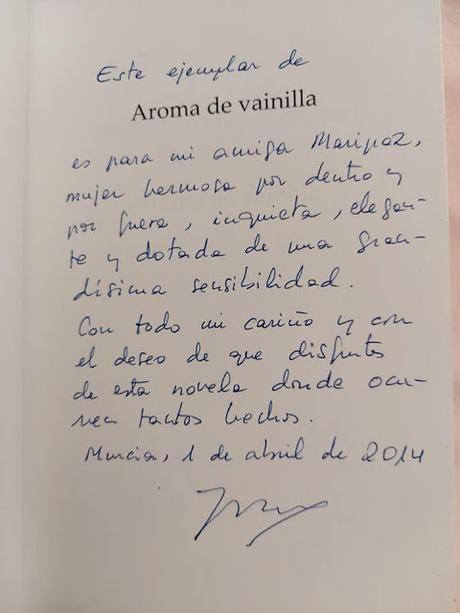 Este ejemplar de
Aroma de vainilla
es para mi amiga Maripaz,
mujer hermosa por dentro y
por fuera, inquieta, elegan-
te y dotada de una gran-
dísima sensibilidad.
Con todo mi cariño y con
el deseo de que disfrutes
de esta novela donde ocu-
rren tantos hechos.
Murcia, 1 de abril de 2014